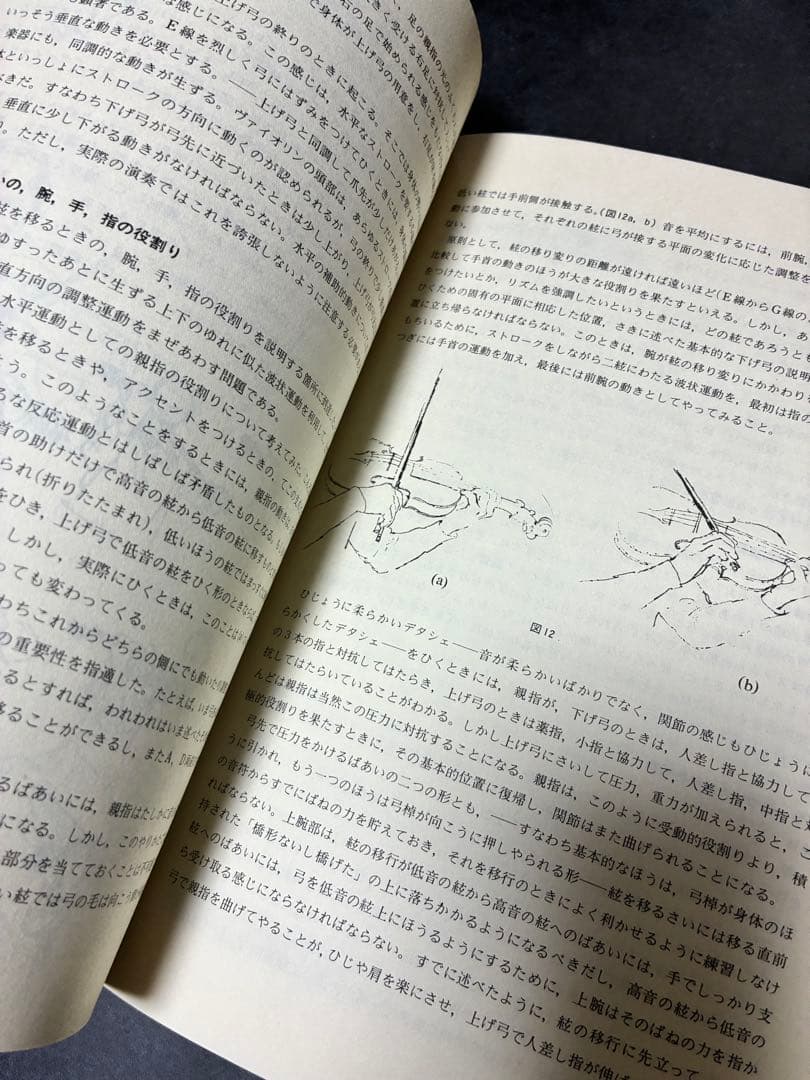 足の親指の
右の足で始められる感じを
きく受ける右足に
上げ弓の終りのときに起こる。そこでは身体の
で身体が上げ弓の用意をし、
な感じになる。この感じは、水平なストロークを
も顕著である。E線を烈しく弓にはずみをつけてひくときには、
いっそう垂直な動きを必要とする。――上げ弓と同調して爪先が少し
楽器にも、同調的な動きが生ずる。ヴァイオリンの頭部は、あらゆる
体といっしょにストロークの方向に動くのが認められるが、弓の
きだ。すなわち下げ弓が弓先に近づいたときは少し上がり、上げ弓が
垂直に少し下がる動きがなければならない。水平の補助的動きに
。ただし、実際の演奏ではこれを誇張しないように注意する必要が
の、腕、手、指の役割り
絃を移るときの、腕、手、指の役割りを説明する箇所に到達した
ゆすったあとに生ずる上下のゆれに似た波状運動を利用して、
直方向の調整運動をまぜあわす問題である。
水平運動としての親指の役割りについて考えてみた。
を移るときや、アクセントをつけるときの、てこの
よう。このようなことをするときには、親指の動きは、
ろな反応運動とはしばしば矛盾したものとなる。
首の助けだけで高音の絃から低音の絃に移す
られ(折りたたまれ)、低いほうの絃ではまっすぐ
をひき、上げ弓で低音の絃をひく形のときならば
しかし、実際にひくときは、このことは
っても変わってくる。
わちこれからどちらの側にでも動いたり
の重要性を指適した。たとえば、いま
るとすれば、われわれはいま述べた
移ることができるし、またA、D
るばあいには、親指はたしかに
になる。しかし、このやりかた
部分を当てておくことは不
い絃では弓の毛は向こう側
低い絃では手前側が接触する。(図12a, b) 音を平均にするには、前腕、
動に参加させて、それぞれの絃に弓が接する平面の変化に応じた調整を
ない。
原則として、絃の移り変りの距離が遠ければ遠いほど(E線からG線の
比較して手首の動きのほうが大きな役割りを果たすといえる。しかし、あ
をつけたいとか、リズムを強調したいというときには、どの絃であろうとも
ひくための固有の平面に相応した位置、さきに述べた基本的な下げ弓の説明
置に立ち帰らなければならない。このときは、腕が絃の移り変りにかかわりを
もちいるために、ストロークをしながら二絃にわたる波状運動を、最初は指の
つぎには手首の運動を加え、最後には前腕の動きとしてやってみること。
(a)
図12
(b)
ひじょうに柔らかいデタシェ――音が柔らかいばかりでなく、関節の感じもひじょうに
らかくしたデタシェ――をひくときには、親指が、下げ弓のときは、人差し指と協力して
の3本の指と対抗してはたらき、上げ弓のときは薬指、小指と協力して、人差し指、中指と
抗してはたらいていることがわかる。しかし上げ弓にさいして圧力、重力が加えられると、こ
んどは親指は当然この圧力に対抗することになる。親指は、このように受動的役割りより、積
極的役割りを果たすときに、その基本的位置に復帰し、関節はまた曲げられることになる。
弓先で圧力をかけるばあいの二つの形とも、――すなわち基本的なほうは、弓棹が身体のほ
うに引かれ、もう一つのほうは弓棹が向こうに押しやられる形――絃を移るさいには移る直前
の音符からすでにばねの力を貯えておき、それを移行のときによく利かせるように練習しなけ
ればならない。上腕部は、絃の移行が低音の絃から高音の絃へのばあいには、手でしっかり支
持された「橋形ないし橋げた」の上に落ちかかるようになるべきだし、高音の絃から低音の
絃へのばあいには、弓を低音の絃上にほうるようにするために、上腕はそのばねの力を指か
ら受け取る感じにならなければならない。すでに述べたように、絃の移行に先立って
弓で親指を曲げてやることが、ひじや肩を楽にさせ、上げ弓で人差し指が伸ば